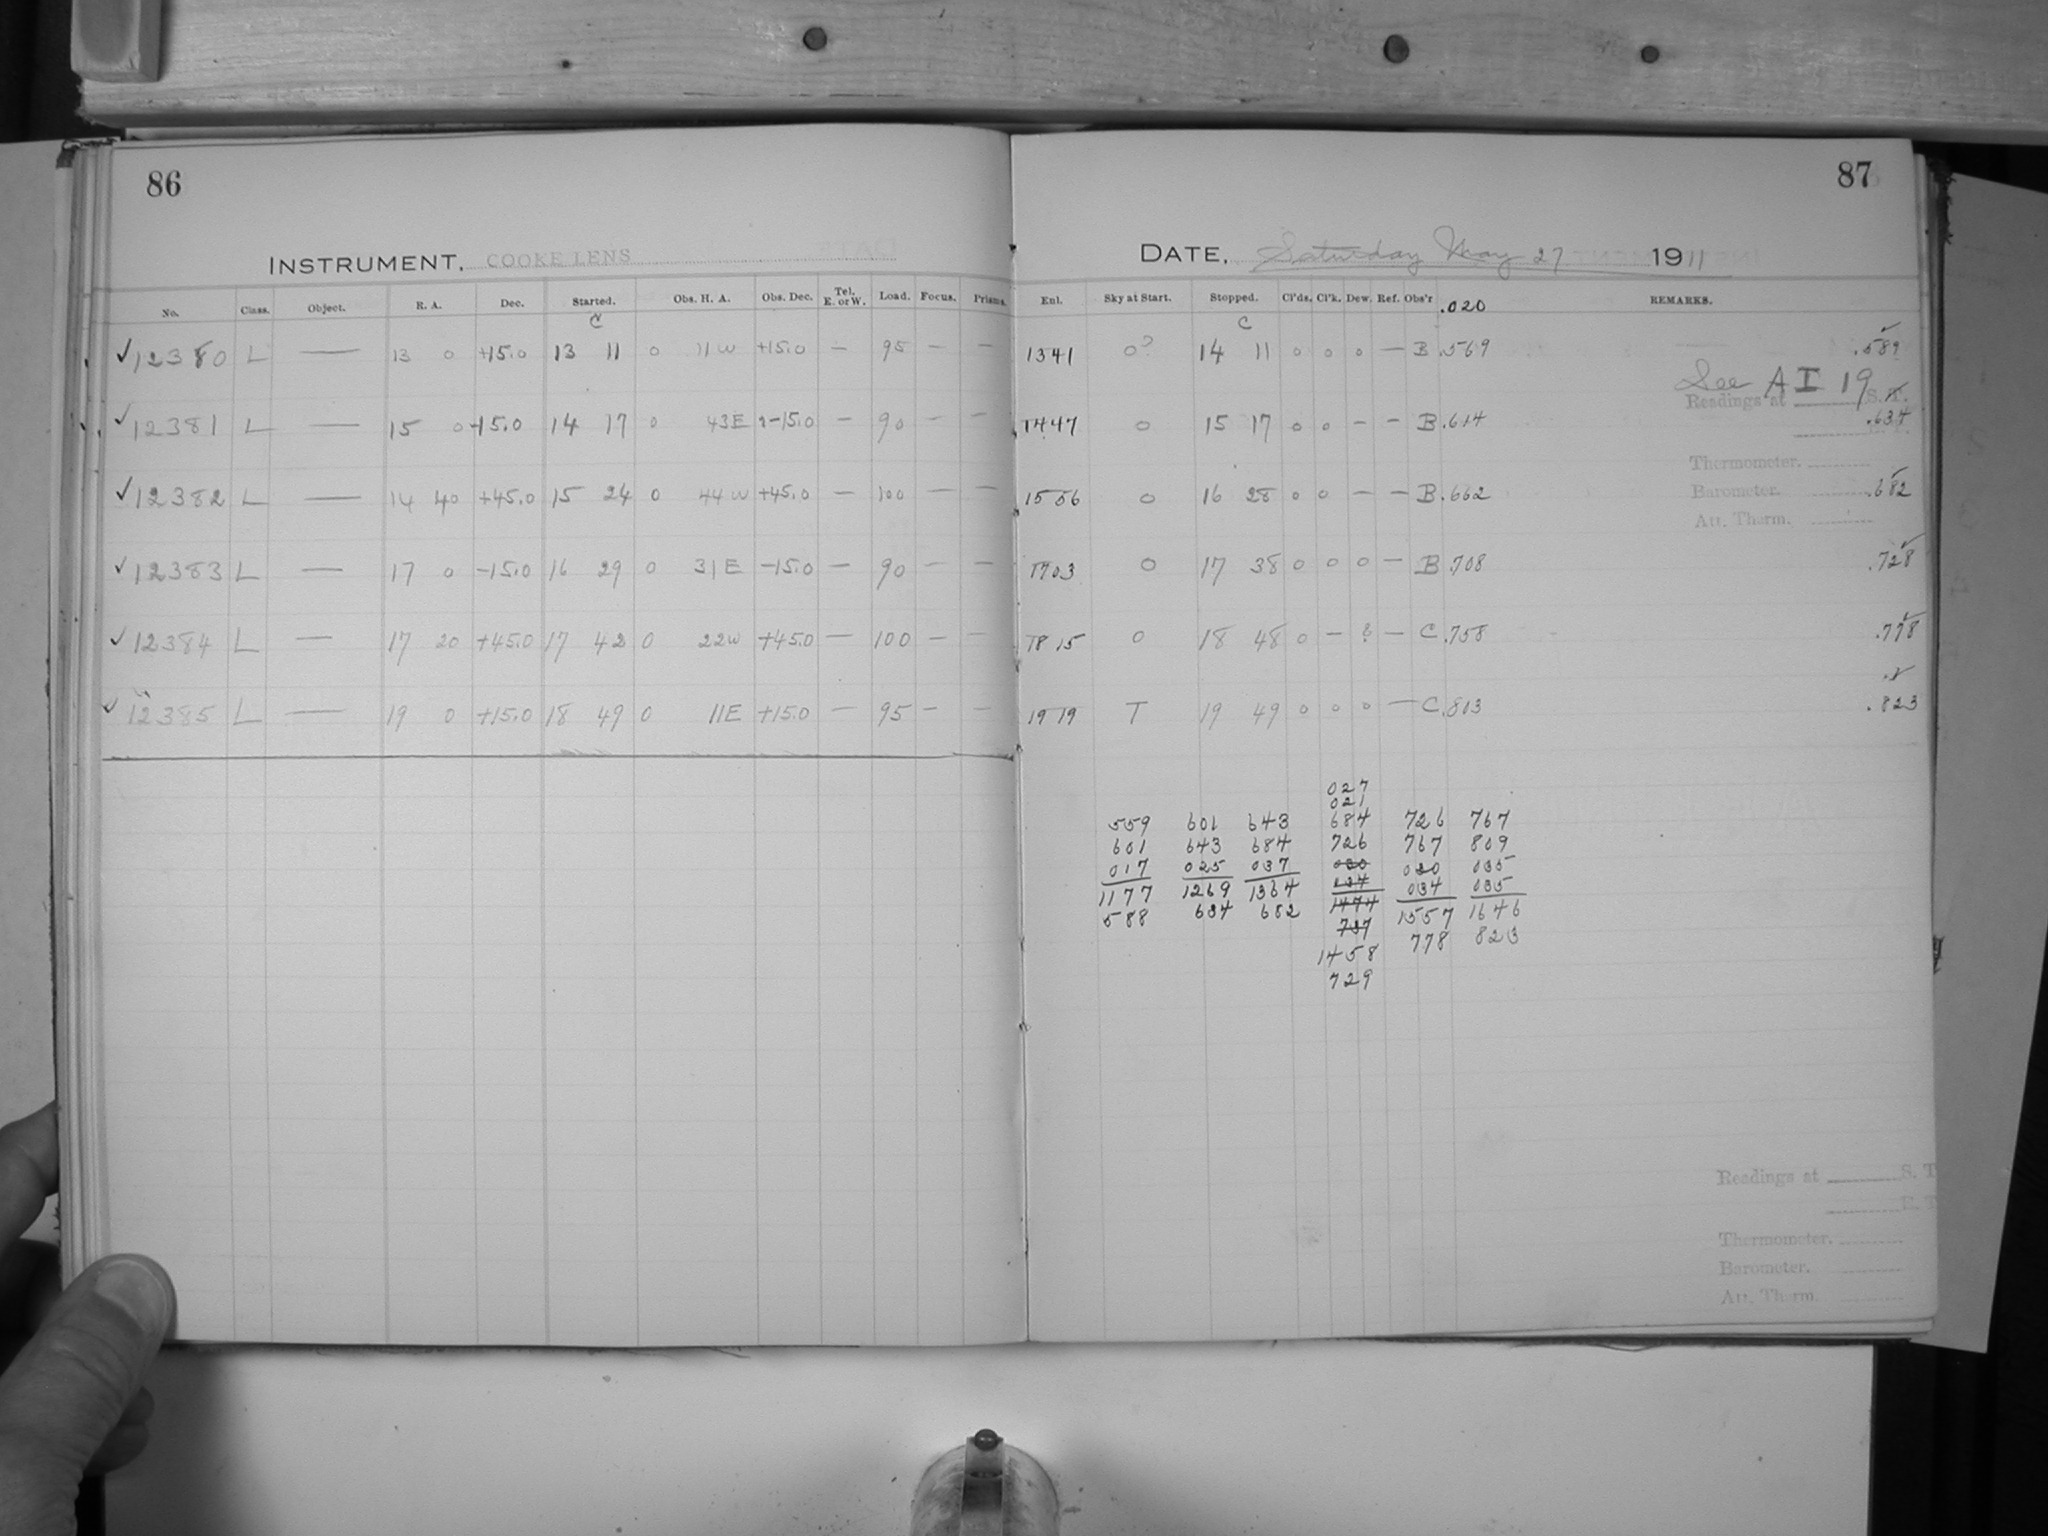 86
INSTRUMENT, COOKE LENS
No. Class. Object. R. A. Dec. Started. Obs. H. A. Obs. Dec. Tel. E. or W. Load. Focus. Prisms.
C
✓ 12380 L — 13 0 +15.0 13 11 0 11W +15.0 — 95 — —
✓ 12381 L — 15 0 -15.0 14 17 0 43E -15.0 — 90 — —
✓ 12382 L — 14 40 +45.0 15 24 0 44W +45.0 — 100 — —
✓ 12383 L — 17 0 -15.0 16 29 0 31E -15.0 — 90 — —
✓ 12384 L — 17 20 +45.0 17 42 0 22W +45.0 — 100 — —
✓ 12385 L — 19 0 +15.0 18 49 0 11E +15.0 — 95 — —
87
DATE, Saturday May 27 1911
Enl. Sky at Start. Stopped. Cl'ds. Cl'k. Dew. Ref. Obs'r .020 REMARKS.
C
1341 0? 14 11 0 0 0 — B .569 .589
See A I 19
Readings at S.
1447 0 15 17 0 0 — — B .614 .634
Thermometer.
1556 0 16 28 0 0 — — B .662 Barometer. .682
Att. Therm.
1703 0 17 38 0 0 0 — B .708 .728
1815 0 18 48 0 — — C .758 .778
1919 T 19 49 0 0 0 — C .803 .823
027
021
559 601 643 684 726 767
601 643 684 726 767 809
017 025 037 030 030 035
034 034 035
1177 1269 1364 1474 1557 1646
588 634 682 737 778 823
1458
729
Readings at S. T
E. T
Thermometer.
Barometer.
Att. Therm.